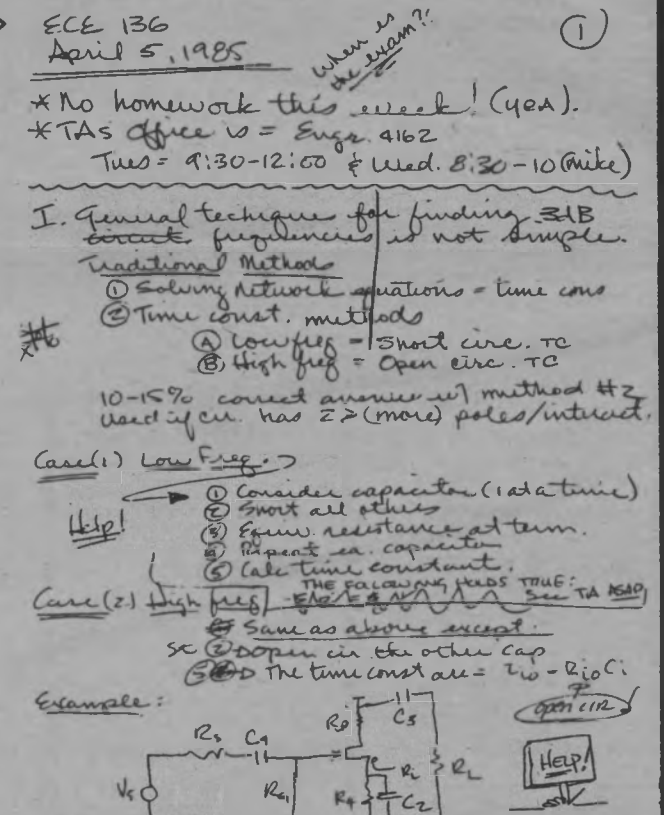 ECE 136
April 5, 1985
when is
the exam?!
1
* No homework this week! (yea).
* TAs office is = Engr. 4162
Tues = 9:30-12:00 & Wed. 8:30-10 (mike)
I. General techniques for finding 3dB
circuit frequencies is not simple.
Traditional Methods
① Solving network equations = time cons
② Time const. methods
Ⓐ Low freq = Short circ. TC
Ⓑ High freq = Open circ. TC
10-15% correct answer w/ method #2
used if cir. has 2> (more) poles/interact.
Case (1) Low Freq.
① Consider capacitor (1 at a time)
② Short all others
③ Equiv. resistance at term.
④ Repeat ea. capacitor
⑤ Calc time constant.
Help!
Case (2) High freq
THE FOLLOWING HOLDS TRUE:
See TA ASAP!
Same as above except.
② Open cir the other cap
The time const are = τio - Rio Ci
open cir
Example:
HELP!
Rs C4
Vs
RD
C3
RL
C2